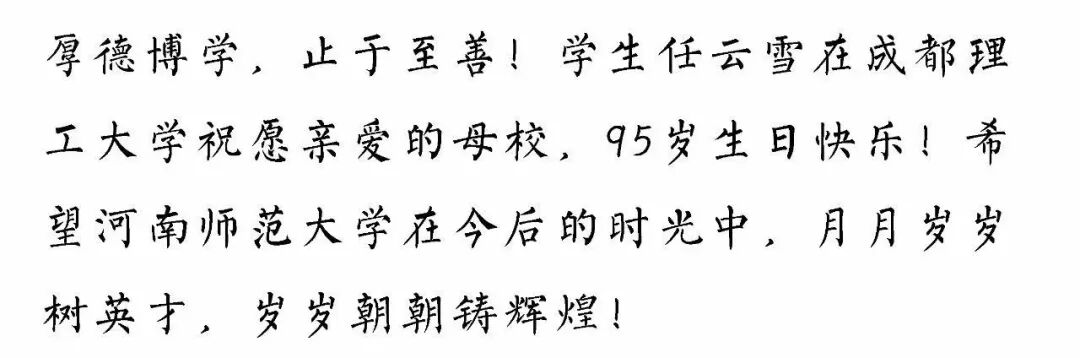 厚德博学，止于至善！学生任云雪在成都理
工大学祝愿亲爱的母校，95岁生日快乐！希
望河南师范大学在今后的时光中，月月岁岁
树英才，岁岁朝朝铸辉煌！